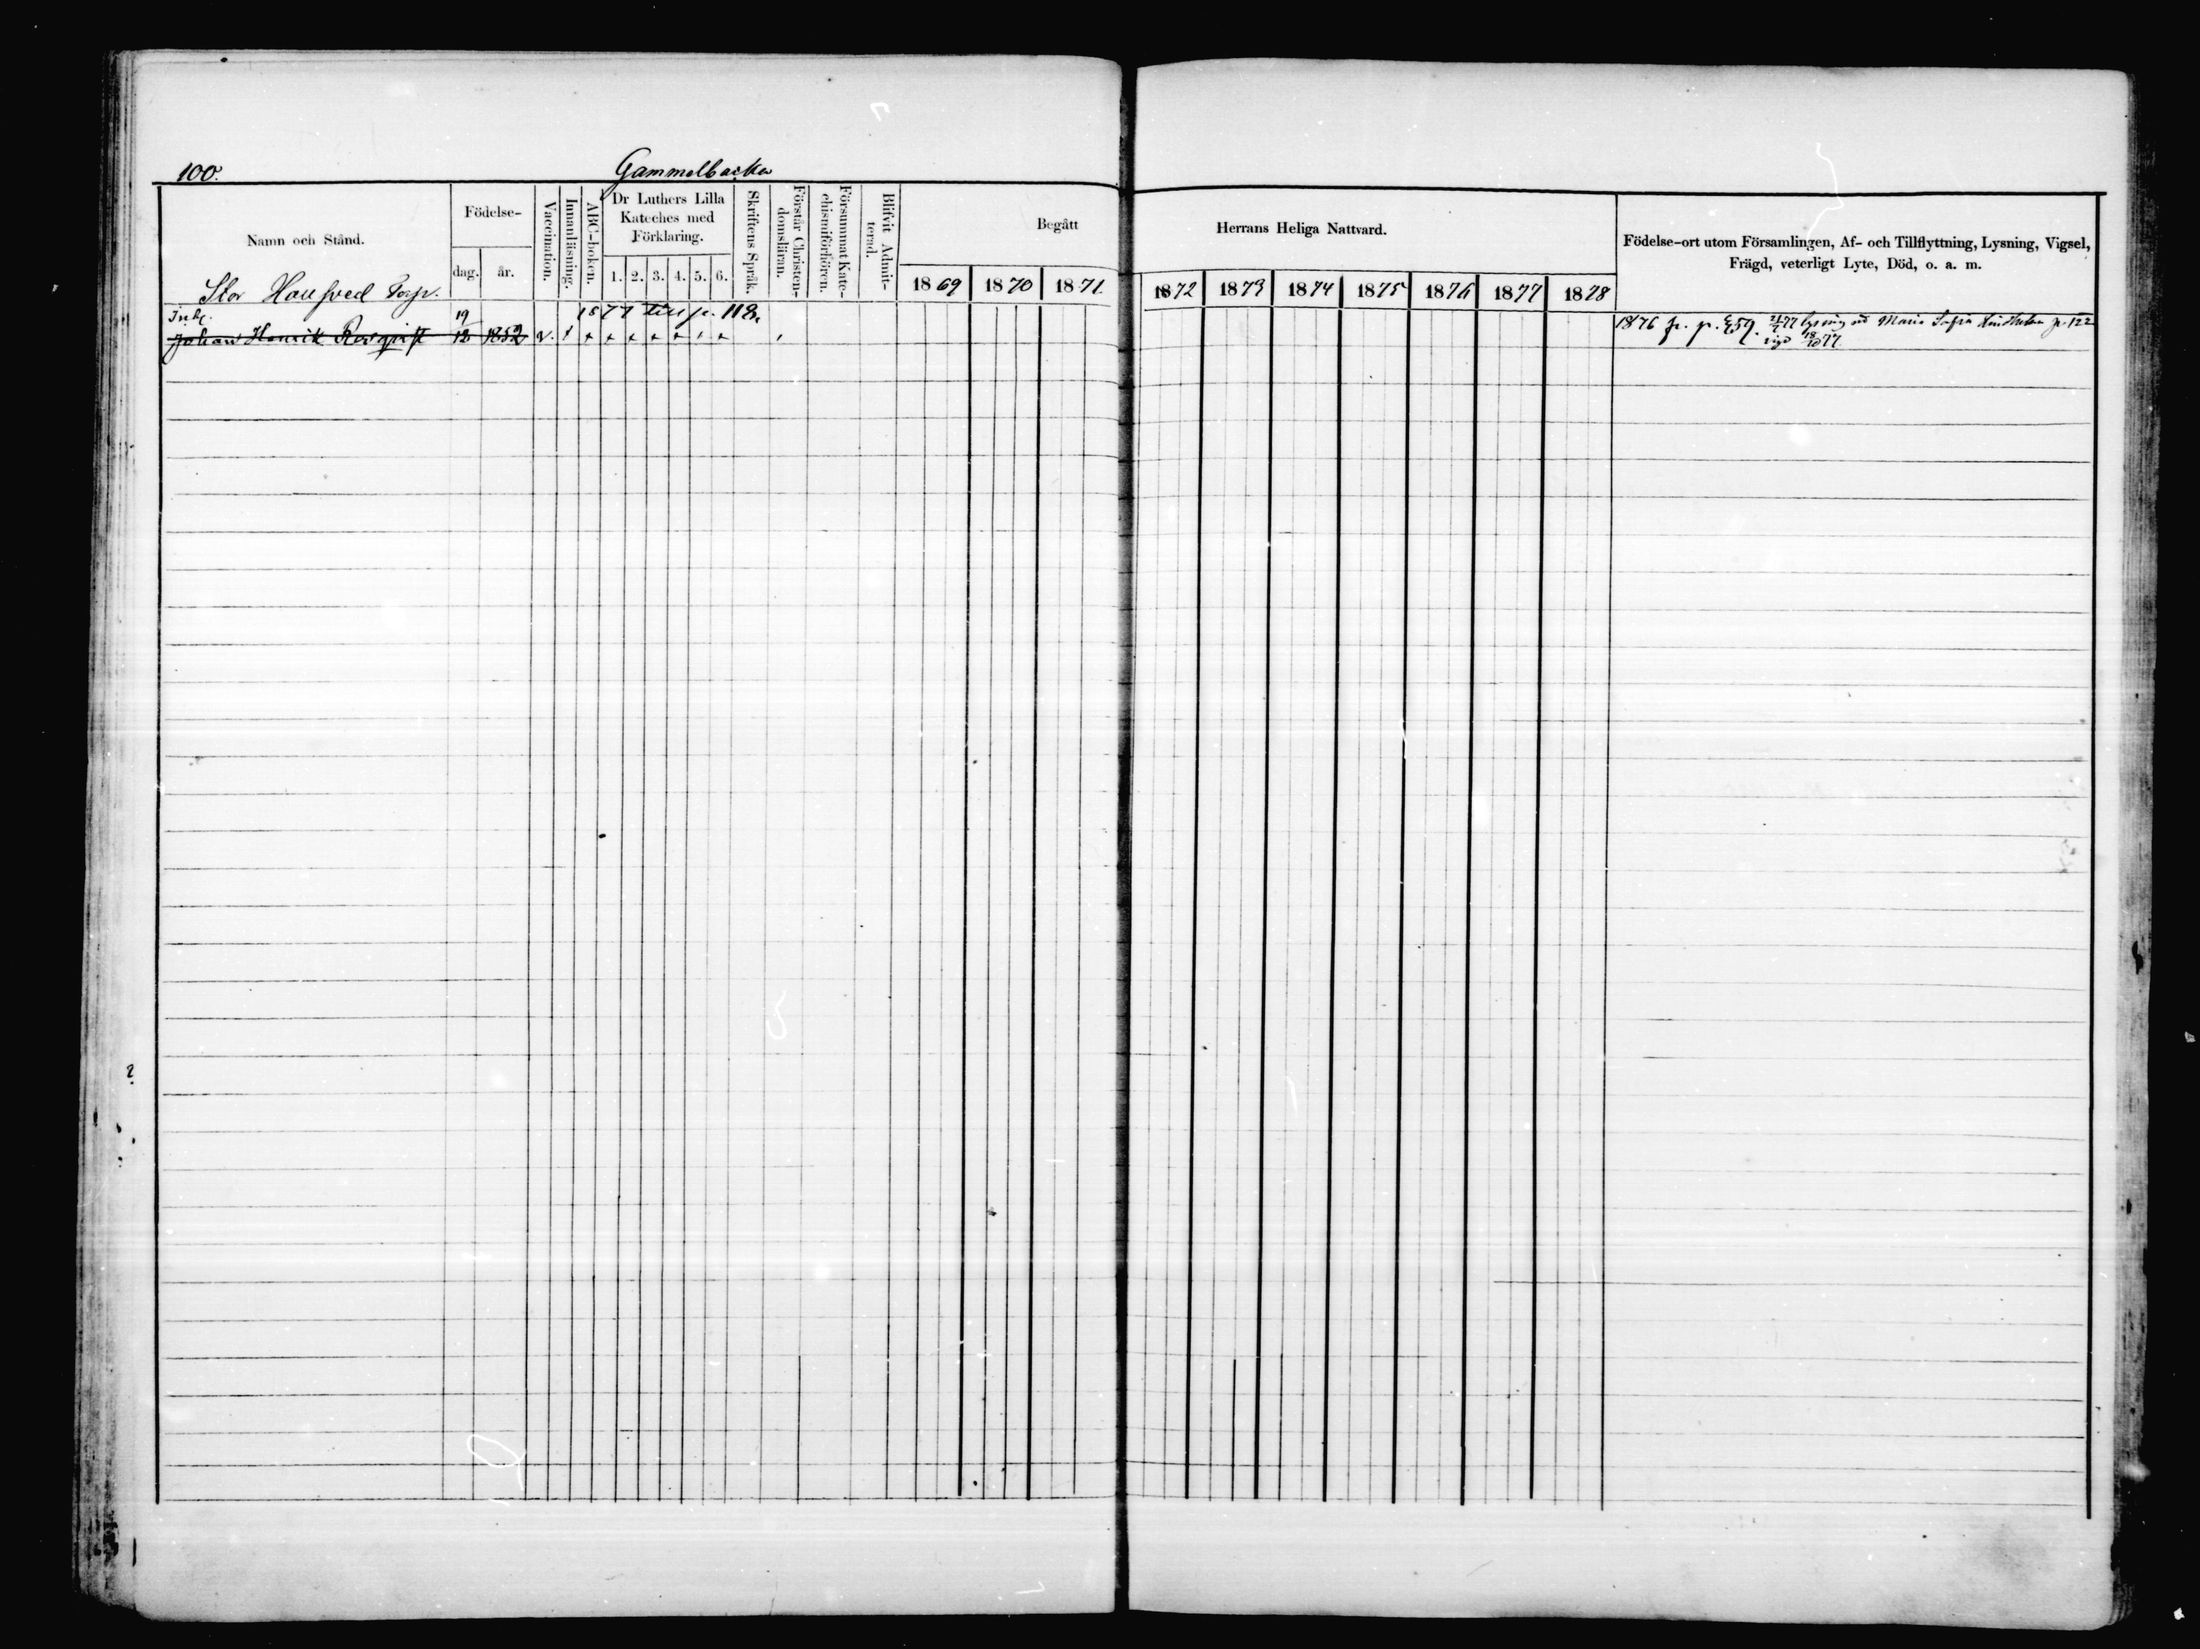 100.
Gammelbacka
Namn och Stånd.
Födelse-
dag.
år.
Vaccination.
Innanläsning.
ABC-boken.
Dr Luthers Lilla
Kateches med
Förklaring.
1. 2. 3. 4. 5. 6.
Skriftens Språk.
Förstår Christen-
domsläran.
Försummat Kate-
chismiförhören.
Blifvit Admit-
terad.
Begått
1869 1870 1871
Herrans Heliga Nattvard.
1872 1873 1874 1875 1876 1877 1878
Födelse-ort utom Församlingen, Af- och Tillflyttning, Lysning, Vigsel,
Frägd, veterligt Lyte, Död, o. a. m.
Stor Torp.
Inh. 19 1877 till p. 118.
Johan Henrik 12 1852 v.
1876 fr. p. 59. 77 lysning Maria Sofia p. 122
vigd 18/10 77.